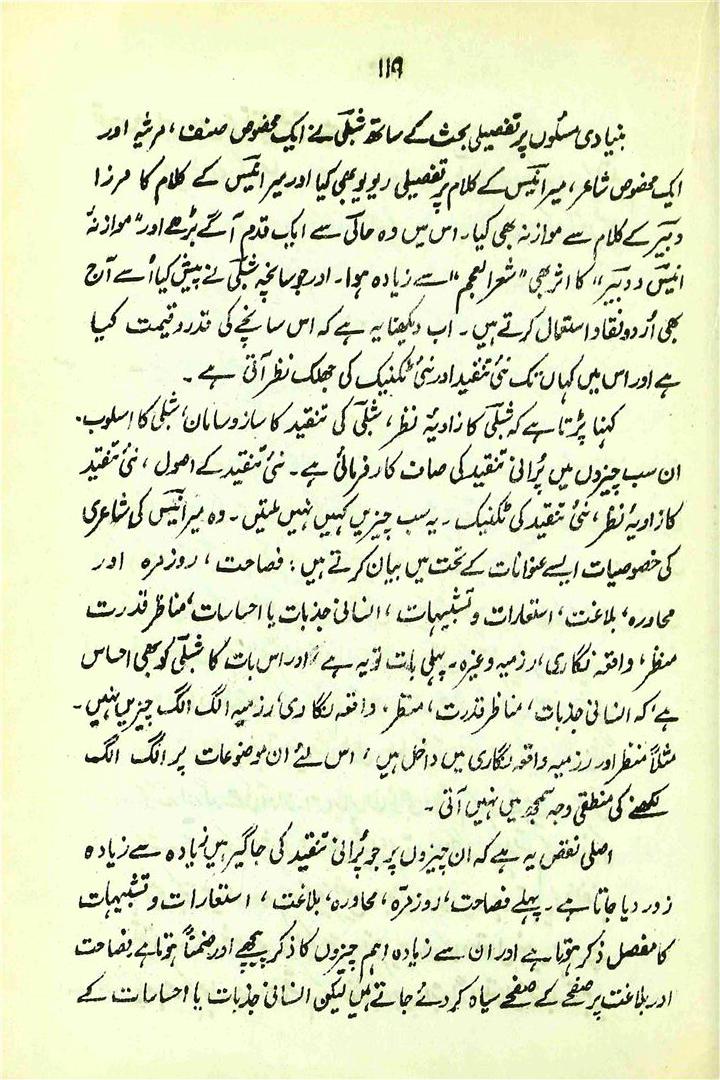 ۱۱۹
بنیادی مسئلوں پر تفصیلی بحث کے ساتھ شبلیؔ نے ایک مخصوص صنف، مرثیہ اور
ایک مخصوص شاعر، میر انیسؔ کے کلام پر تفصیلی ریویو بھی کیا اور میر انیسؔ کے کلام کا مرزا
دبیرؔ کے کلام سے موازنہ بھی کیا۔ اس میں وہ حالیؔ سے ایک قدم آگے بڑھے اور "موازنۂ
انیسؔ و دبیرؔ" کا اثر بھی "شعر العجم" سے زیادہ ہوا۔ اور جو سانچہ شبلیؔ نے پیش کیا اُسے آج
بھی اُردو نقاد استعمال کرتے ہیں۔ اب دیکھنا یہ ہے کہ اس سانچے کی قدر و قیمت کیا
ہے اور اس میں کہاں تک نئی تنقید اور نئی ٹکنیک کی جھلک نظر آتی ہے۔
کہنا پڑتا ہے کہ شبلیؔ کا زاویۂ نظر، شبلیؔ کی تنقید کا ساز و سامان، شبلیؔ کا اسلوب۔
ان سب چیزوں میں پُرانی تنقید کی صاف کارفرمائی ہے۔ نئی تنقید کے اصول، نئی تنقید
کا زاویۂ نظر، نئی تنقید کی ٹکنیک۔ یہ سب چیزیں کہیں نہیں ملتیں۔ وہ میر انیسؔ کی شاعری
کی خصوصیات ایسے عنوانات کے تحت میں بیان کرتے ہیں: فصاحت، روزمرہ اور
محاورہ، بلاغت، استعارات و تشبیہات، انسانی جذبات یا احساسات، مناظر قدرت
منظر، واقعہ نگاری، رزمیہ وغیرہ۔ پہلی بات تو یہ ہے، اور اس بات کا شبلیؔ کو بھی احساس
ہے، کہ انسانی جذبات، مناظر قدرت، منظر، واقعہ نگاری، رزمیہ الگ الگ چیزیں نہیں۔
مثلاً منظر اور رزمیہ واقعہ نگاری میں داخل ہیں، اس لئے ان موضوعات پر الگ الگ
لکھنے کی منطقی وجہ سمجھ میں نہیں آتی۔
اصلی نقص یہ ہے کہ ان چیزوں پر جو پُرانی تنقید کی جاگیر ہیں زیادہ سے زیادہ
زور دیا جاتا ہے۔ پہلے فصاحت، روزمرّہ، محاورہ، بلاغت، استعارات و تشبیہات
کا مفصل ذکر ہوتا ہے اور ان سے زیادہ اہم چیزوں کا ذکر پیچھے اور ضمناً ہوتا ہے۔ فصاحت
اور بلاغت پر صفحے کے صفحے سیاہ کر دئے جاتے ہیں لیکن انسانی جذبات یا احساسات کے